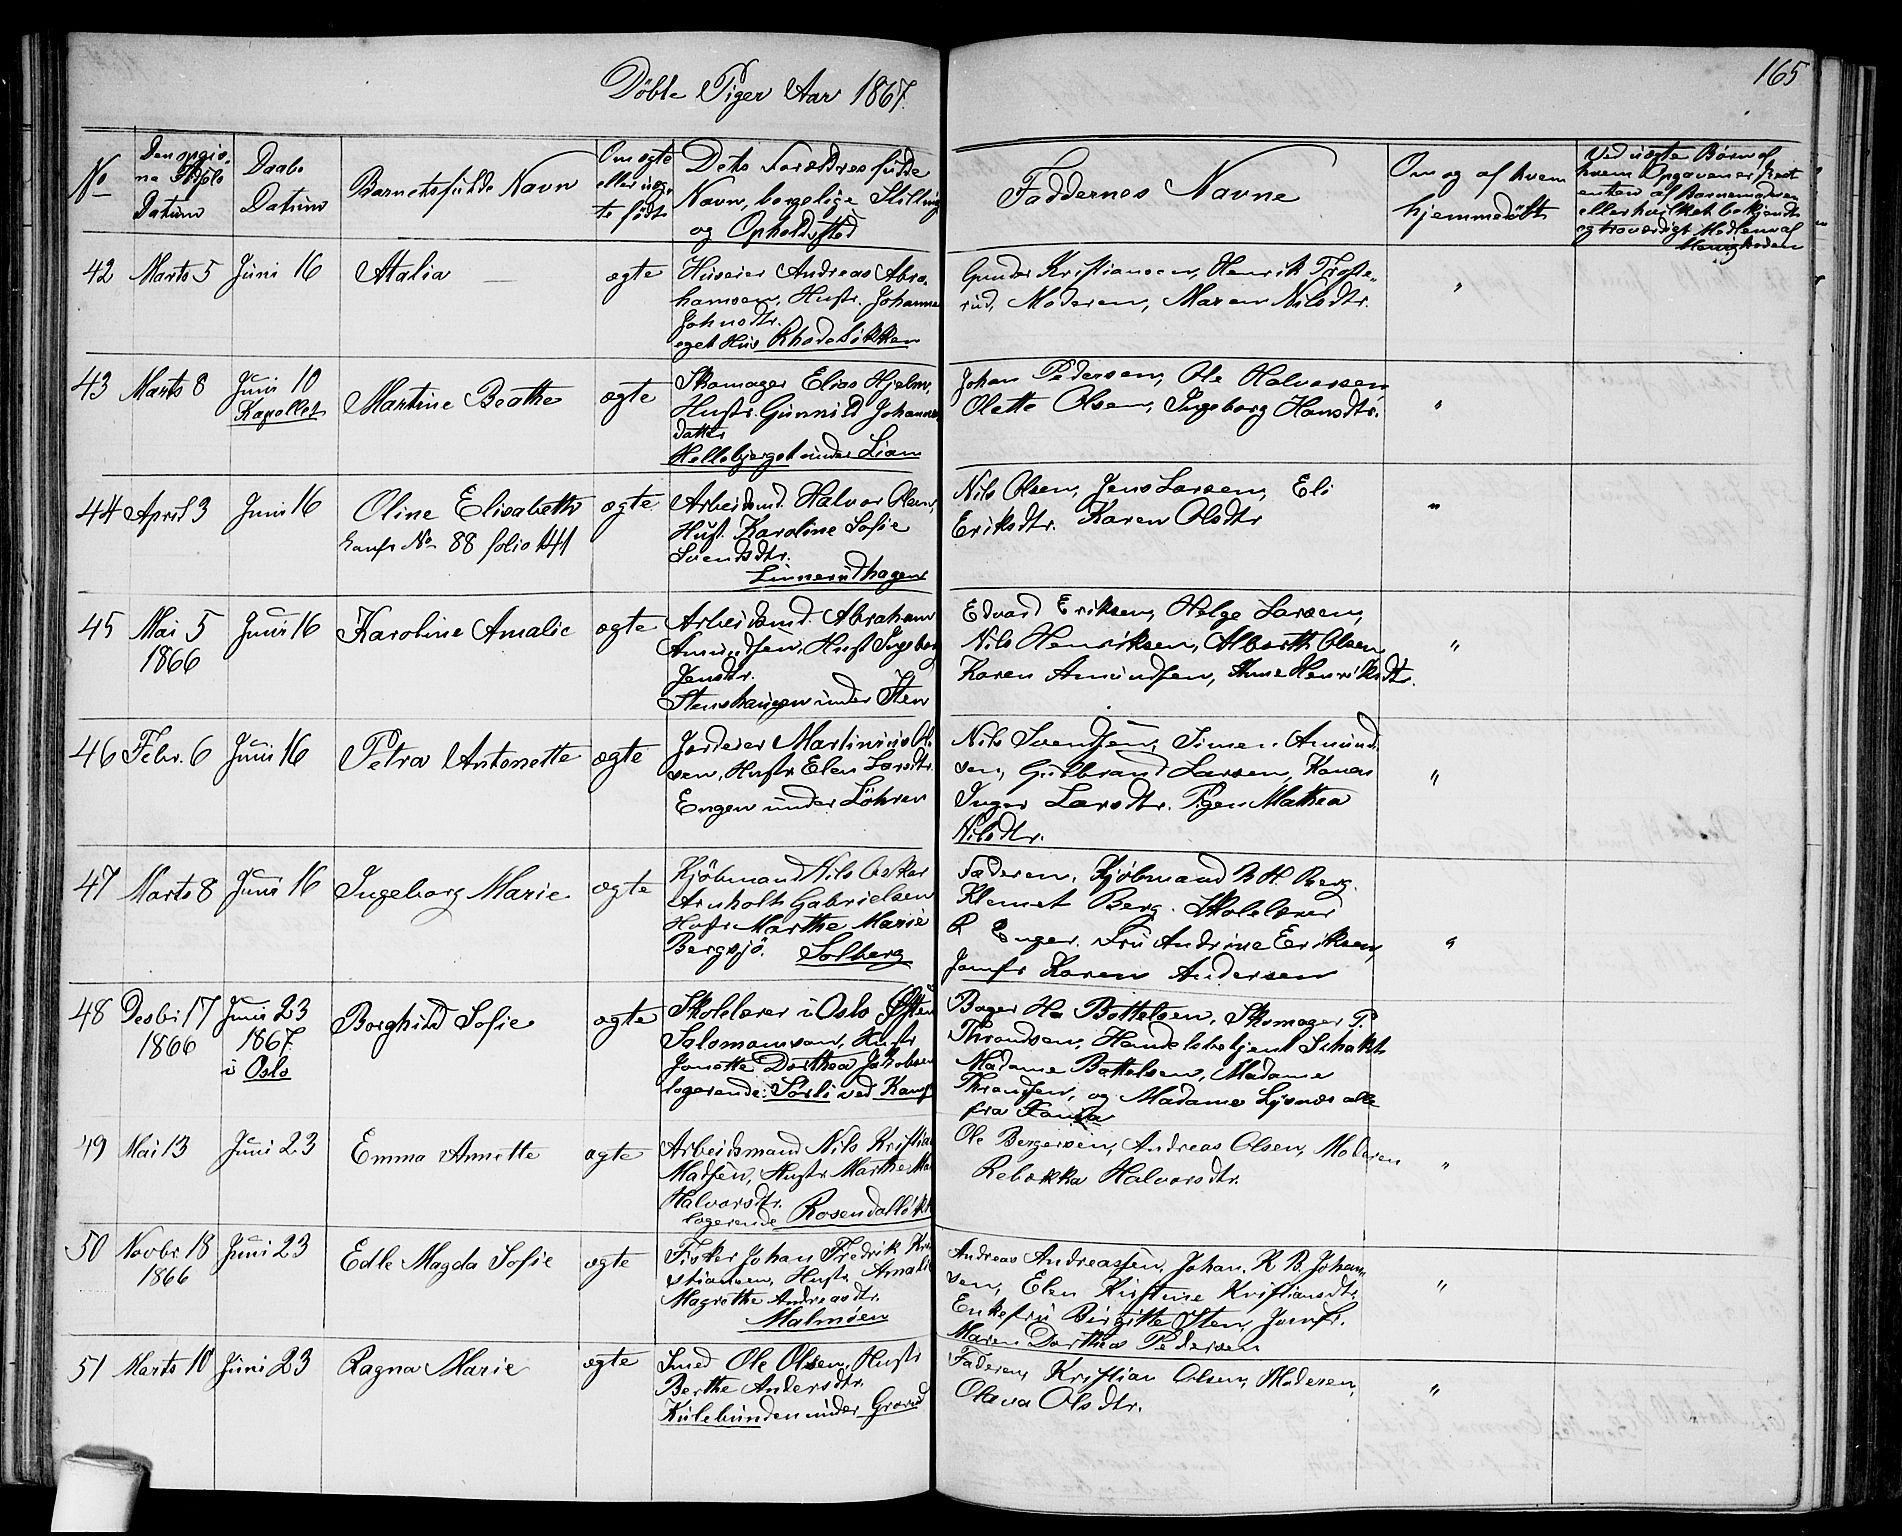 Döbte Piger Aar 1867.
165
No
Den opgiv-
ne Födsels
Datum
Daabs
Datum
Barnets fulde Navn
Om ægte
eller uæg-
te født
Dets Forældres fulde
Navn, borgelige Stilling
og Opholdssted
Faddernes Navne
Om og af hvem
hjemmedöbt
Ved uægte Børn af
hvem Opgaven er skeet
enten af Barnemoderen
eller hvilket bekjendt
og troværdigt Medlem af
Menigheden
42 Marts 5 Juni 16 Atalia — ægte
Huseier Andreas Abra-
hamsen, Hustr. Johanne
Johnsdtr.
eget Huus Rhodeløkken
Gunder Kristiansen, Henrik Troste-
rud, Moderen, Maren Nilsdtr.
"
43 Marts 8 Juni 10
Kapellet
Martine Beathe ægte
Skomager Elias Hjelm,
Hustr. Gunnild Johannes
datter
Hellebjerget under Lian
Johan Pedersen, Ole Halvorsen
Olette Olsen, Ingeborg Hansdtr.
"
44 April 3 Juni 16 Oline Elisabeth ægte
Konfr No 88 folio 141
Arbeidsmd. Halvor Olsen,
Hust. Karoline Sofie
Svendsdtr.
Linnerudhagen
Nils Olsen, Jens Larsen, Eli
Eriksdtr. Karen Olsdtr
"
45 Mai 5
1866
Juni 16 Karoline Amalie ægte
Arbeidsmd. Abraham
Amundsen, Hust Ingeborg
Jensdtr.
Stenshaugen under Sten
Edvard Eriksen, Helge Larsen,
Nils Henriksen, Alberth Olsen
Karen Amundsen, Anne Henriksdtr.
"
46 Febr. 6 Juni 16 Petra Antonette ægte
Jordeier Martinius Ol-
sen, Hustr. Elen Larsdtr.
Engen under Löhren
Nils Svendsen, Simen Amund-
sen, Gulbrand Larsen, Konen
Inger Larsdtr. Pigen Mathea
Nilsdtr.
"
47 Marts 8 Juni 16 Ingeborg Marie ægte
Kjöbmand Nils Oskar
Arnholt Gabrielsen
Hustr Marthe Marie
Bergsjö. Solberg
Faderen, Kjöbmand B. H. Berg.
Klemet Berg. Skolelærer
R Enger. Fru Andrine Eriksen,
Jomfr Karen Andersen
"
48 Desbr 17
1866
Juni 23
1867.
i Oslo
Borghild Sofie ægte
Skolelærer i Oslo Østen
Salomonsson, Hustr
Jonette Dorthea Jakobsen
logerende: Sorli ved Kamp
Bager Ha Bottelsen, Skomager P.
Throndsen, Handelsbetjent Schakt
Madame Bottelsen, Madame
Thronsen, og Madame Lysnæs alle
fra
49 Mai 13 Juni 23 Emma Annette ægte
Arbeidsmand Nils Kristian
Madsen, Hustr Marthe Ma
Halvorsdtr.
logerende Rosendalløkk
Ole Bergersen, Andreas Olsen, Moderen
Rebekka Halvorsdtr.
"
50 Novbr 18
1866
Juni 23 Edle Magda Sofie ægte
Fisker Johan Fredrik Kri-
stiansen, Hustr. Amalie
Magrethe Andreasdtr.
Malmöen
Andreas Andreassen, Johan. K B. Johan-
sen, Elen Kirstine Kristiansdtr.
Enkefru Birgitte Sten, Jomfr.
Maren Dorthea Pedersen
"
51 Marts 10 Juni 23 Ragna Marie ægte
Smed Ole Olsen, Hustr
Berthe Andersdtr.
Kulebunden under Grorud
Faderen, Kristian Olsen, Moderen,
Olava Olsdtr.
"